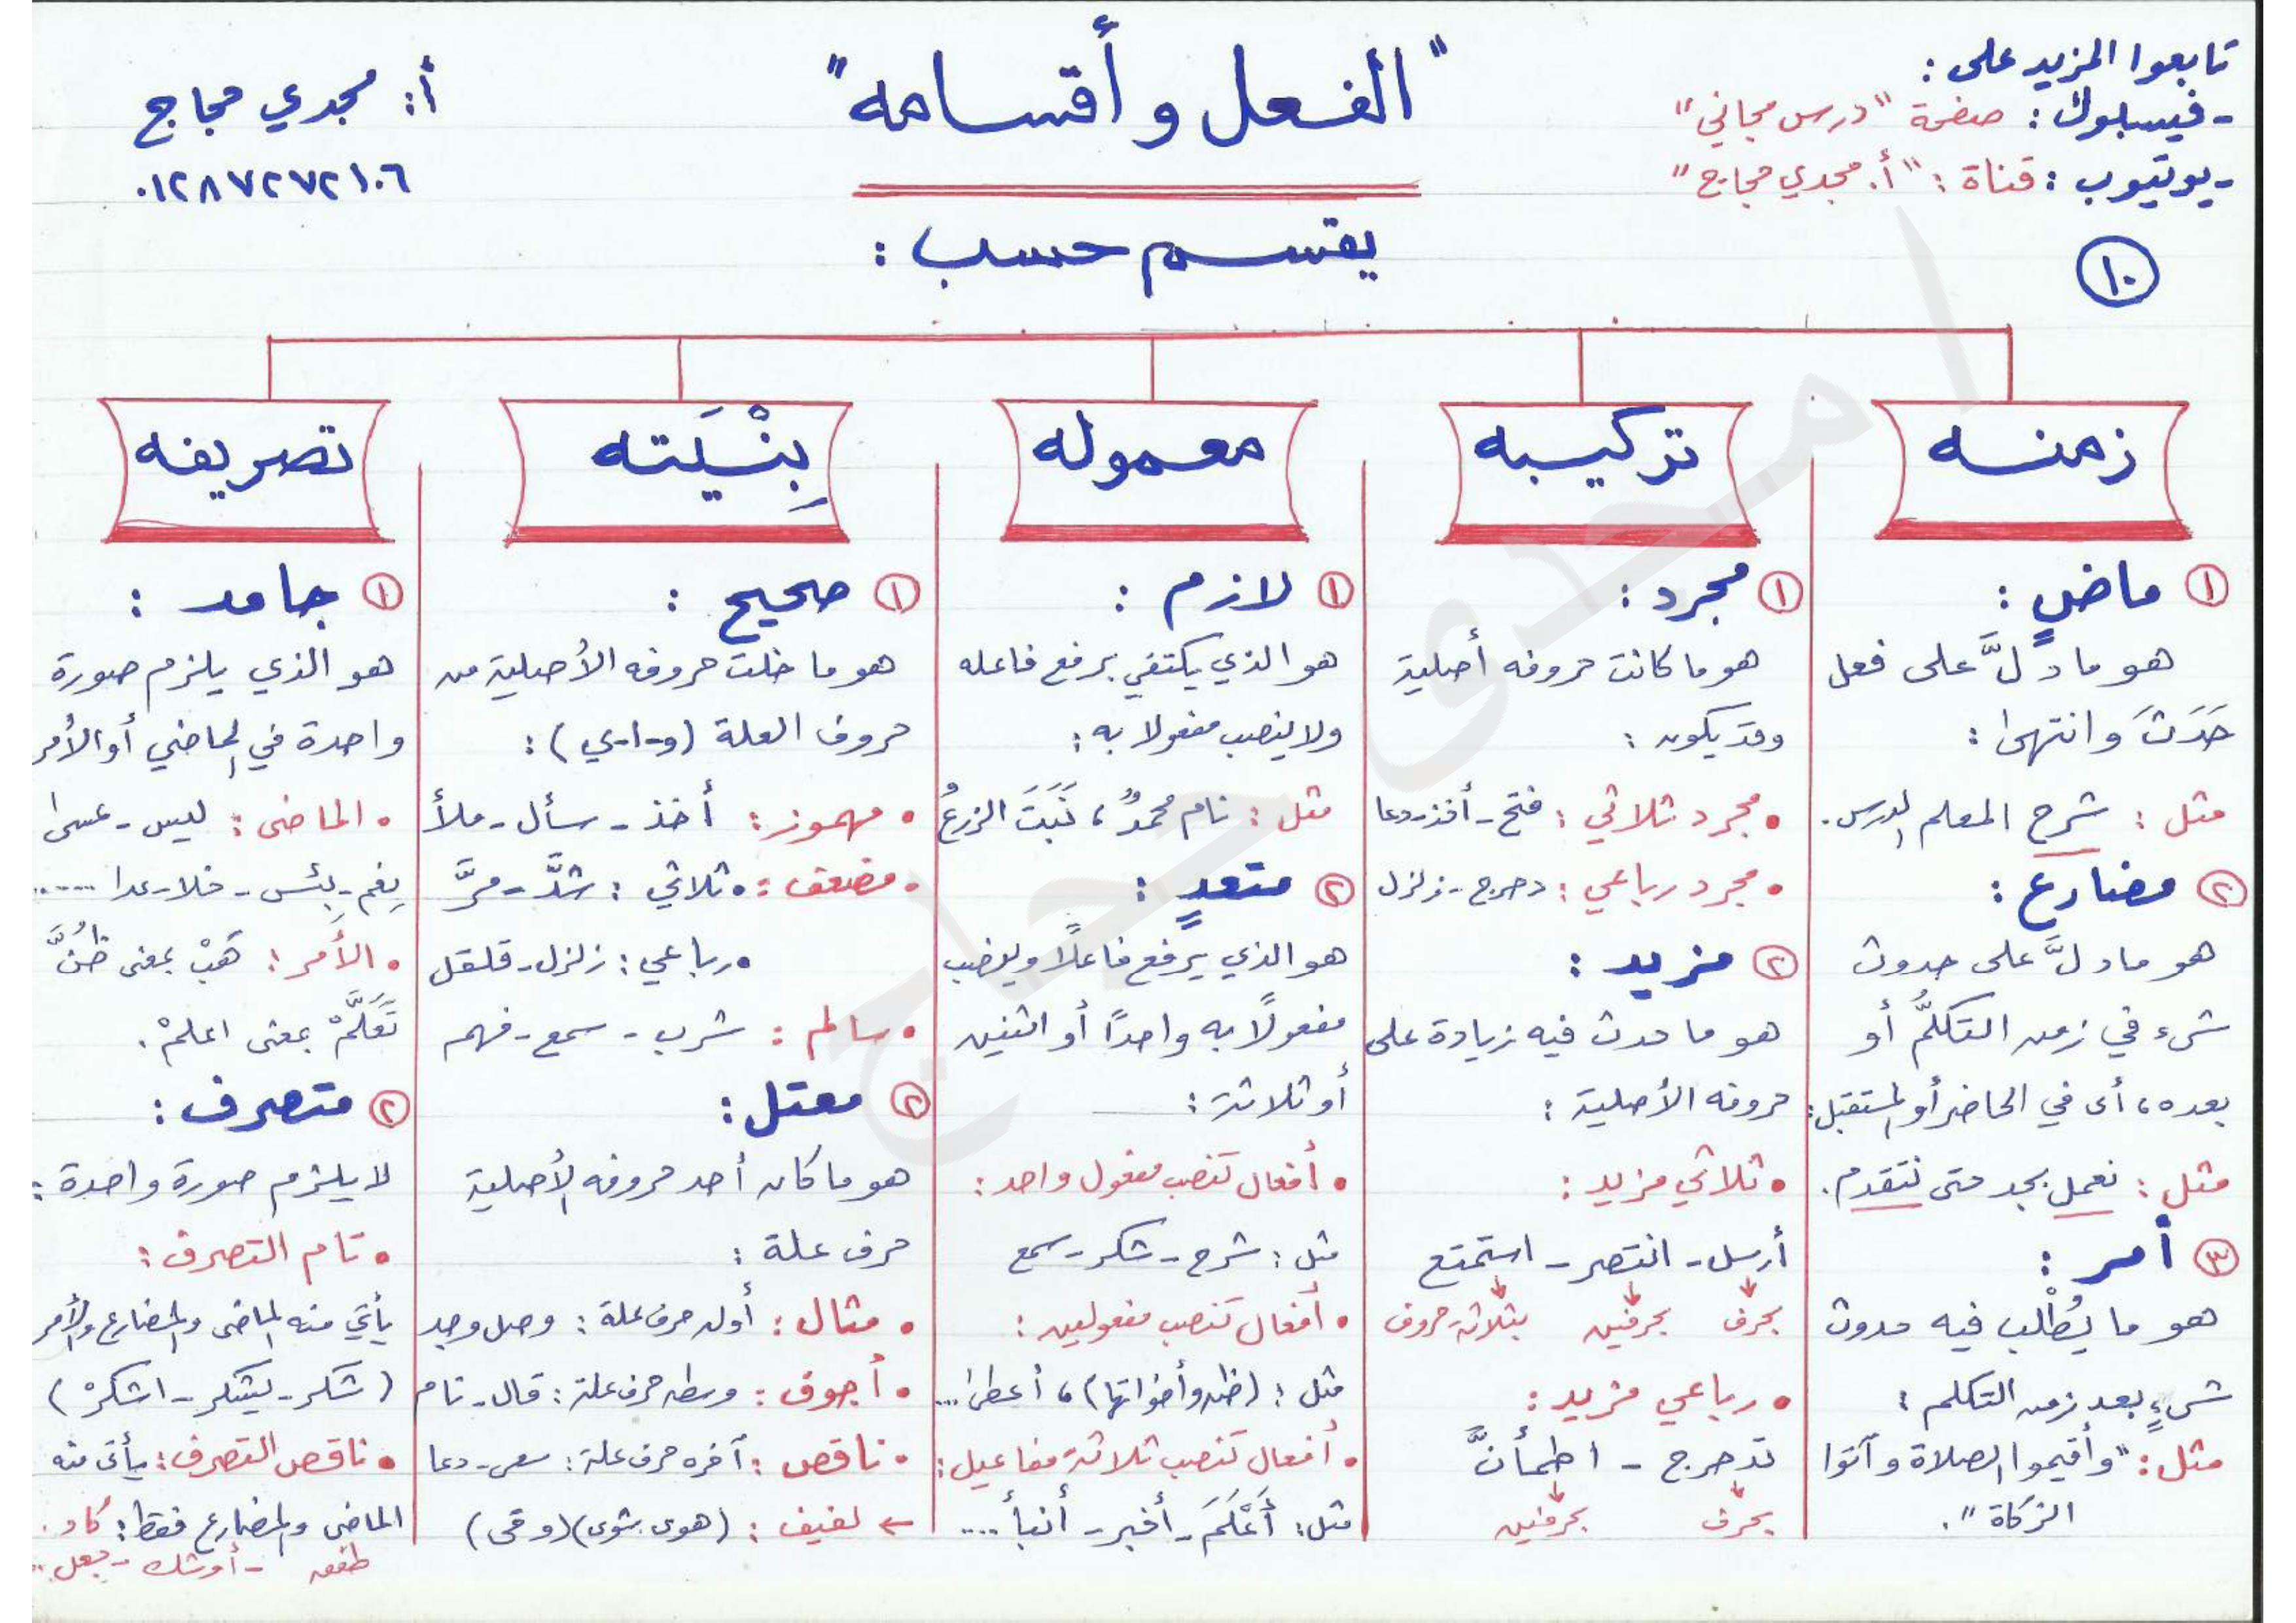 تابعوا المزيد على :
- فيسبلوك : صفحة "درس مجاني"
- يوتيوب : قناة : "أ. مجدي حجاج"
١٠
"الفعل وأقسامه"
أ: مجدي حجاج
٠١٢٨٧٢٧٢١٠٦
يقسم حسب :
زمنه
① ماضٍ :
هو ما دلَّ على فعل
حَدَثَ وانتهى :
مثل : شرح المعلم الدرس.
② مضارع :
هو ما دلَّ على حدوث
شىء في زمن التكلُّم أو
بعده، أى في الحاضر أو المستقبل:
مثل : نعمل بجد حتى نتقدم.
③ أمر :
هو ما يُطْلب فيه حدوث
شىءٍ بعد زمن التكلم :
مثل : "وأقيموا الصلاة وآتوا
الزكاة".
تركيبه
① مجرد :
هو ما كانت حروفه أصلية
وقد يكون :
• مجرد ثلاثي : فتح - أخذ - دعا
• مجرد رباعي : دحرج - زلزل
② مزيد :
هو ما حدث فيه زيادة على
حروفه الأصلية :
• ثلاثي مزيد :
أرسل - انتصر - استمتع
بحرف بحرفين بثلاثة حروف
• رباعي مزيد :
تدحرج - اطمأنَّ
بحرف بحرفين
معموله
① لازم :
هو الذي يكتفي برفع فاعله
ولا ينصب مفعولا به :
مثل : نام محمدٌ ، نَبَتَ الزرعُ
② متعدٍ :
هو الذي يرفع فاعلًا وينصب
مفعولًا به واحدًا أو اثنين
أو ثلاثة :
• أفعال تنصب مفعول واحد :
مثل : شرح - شكر - سمع
• أفعال تنصب مفعولين :
مثل : (ظن وأخواتها) ، أعطى ...
• أفعال تنصب ثلاثة مفاعيل :
مثل : أَعْلَمَ - أخبر - أنبأ ....
بِنْيَته
① صحيح :
هو ما خلت حروفه الأصلية من
حروف العلة (و-ا-ي) :
• مهموز : أخذ - سأل - ملأ
• مضعف : • ثلاثي : شدَّ - مرَّ
• رباعي : زلزل - قلقل
• سالم : شرب - سمع - فهم
② معتل :
هو ما كان أحد حروفه الأصلية
حرف علة :
• مثال : أوله حرف علة : وصل وجد
• أجوف : وسطه حرف علة : قال - نام
• ناقص : آخره حرف علة : سعى - دعا
← لفيف : (هوى شوى) (وقى)
تصريفه
① جامد :
هو الذي يلزم صورة
واحدة في الماضي أو الأمر
• الماضى : ليس - عسى
نِعْم - بِئس - خلا - عدا .....
• الأمر : هَبْ بمعنى ظُنَّ
تَعَلَّمْ بمعنى اعلمْ.
② متصرف :
لا يلزم صورة واحدة :
• تام التصرف :
يأتي منه الماضى والمضارع والأمر
(شكر - يشكر - اشكرْ)
• ناقص التصرف : يأتى منه
الماضى والمضارع فقط : كاد.
طفق - أوشك - جعل ..
مجدى حجاج